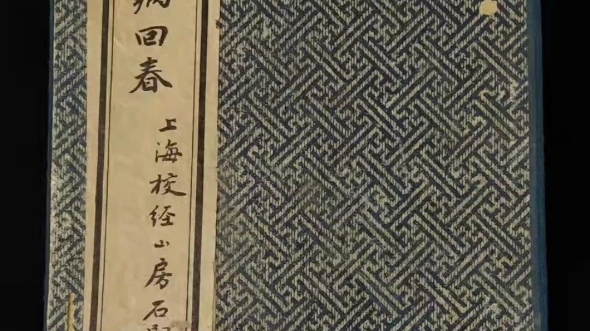 病回春
上海校经山房石